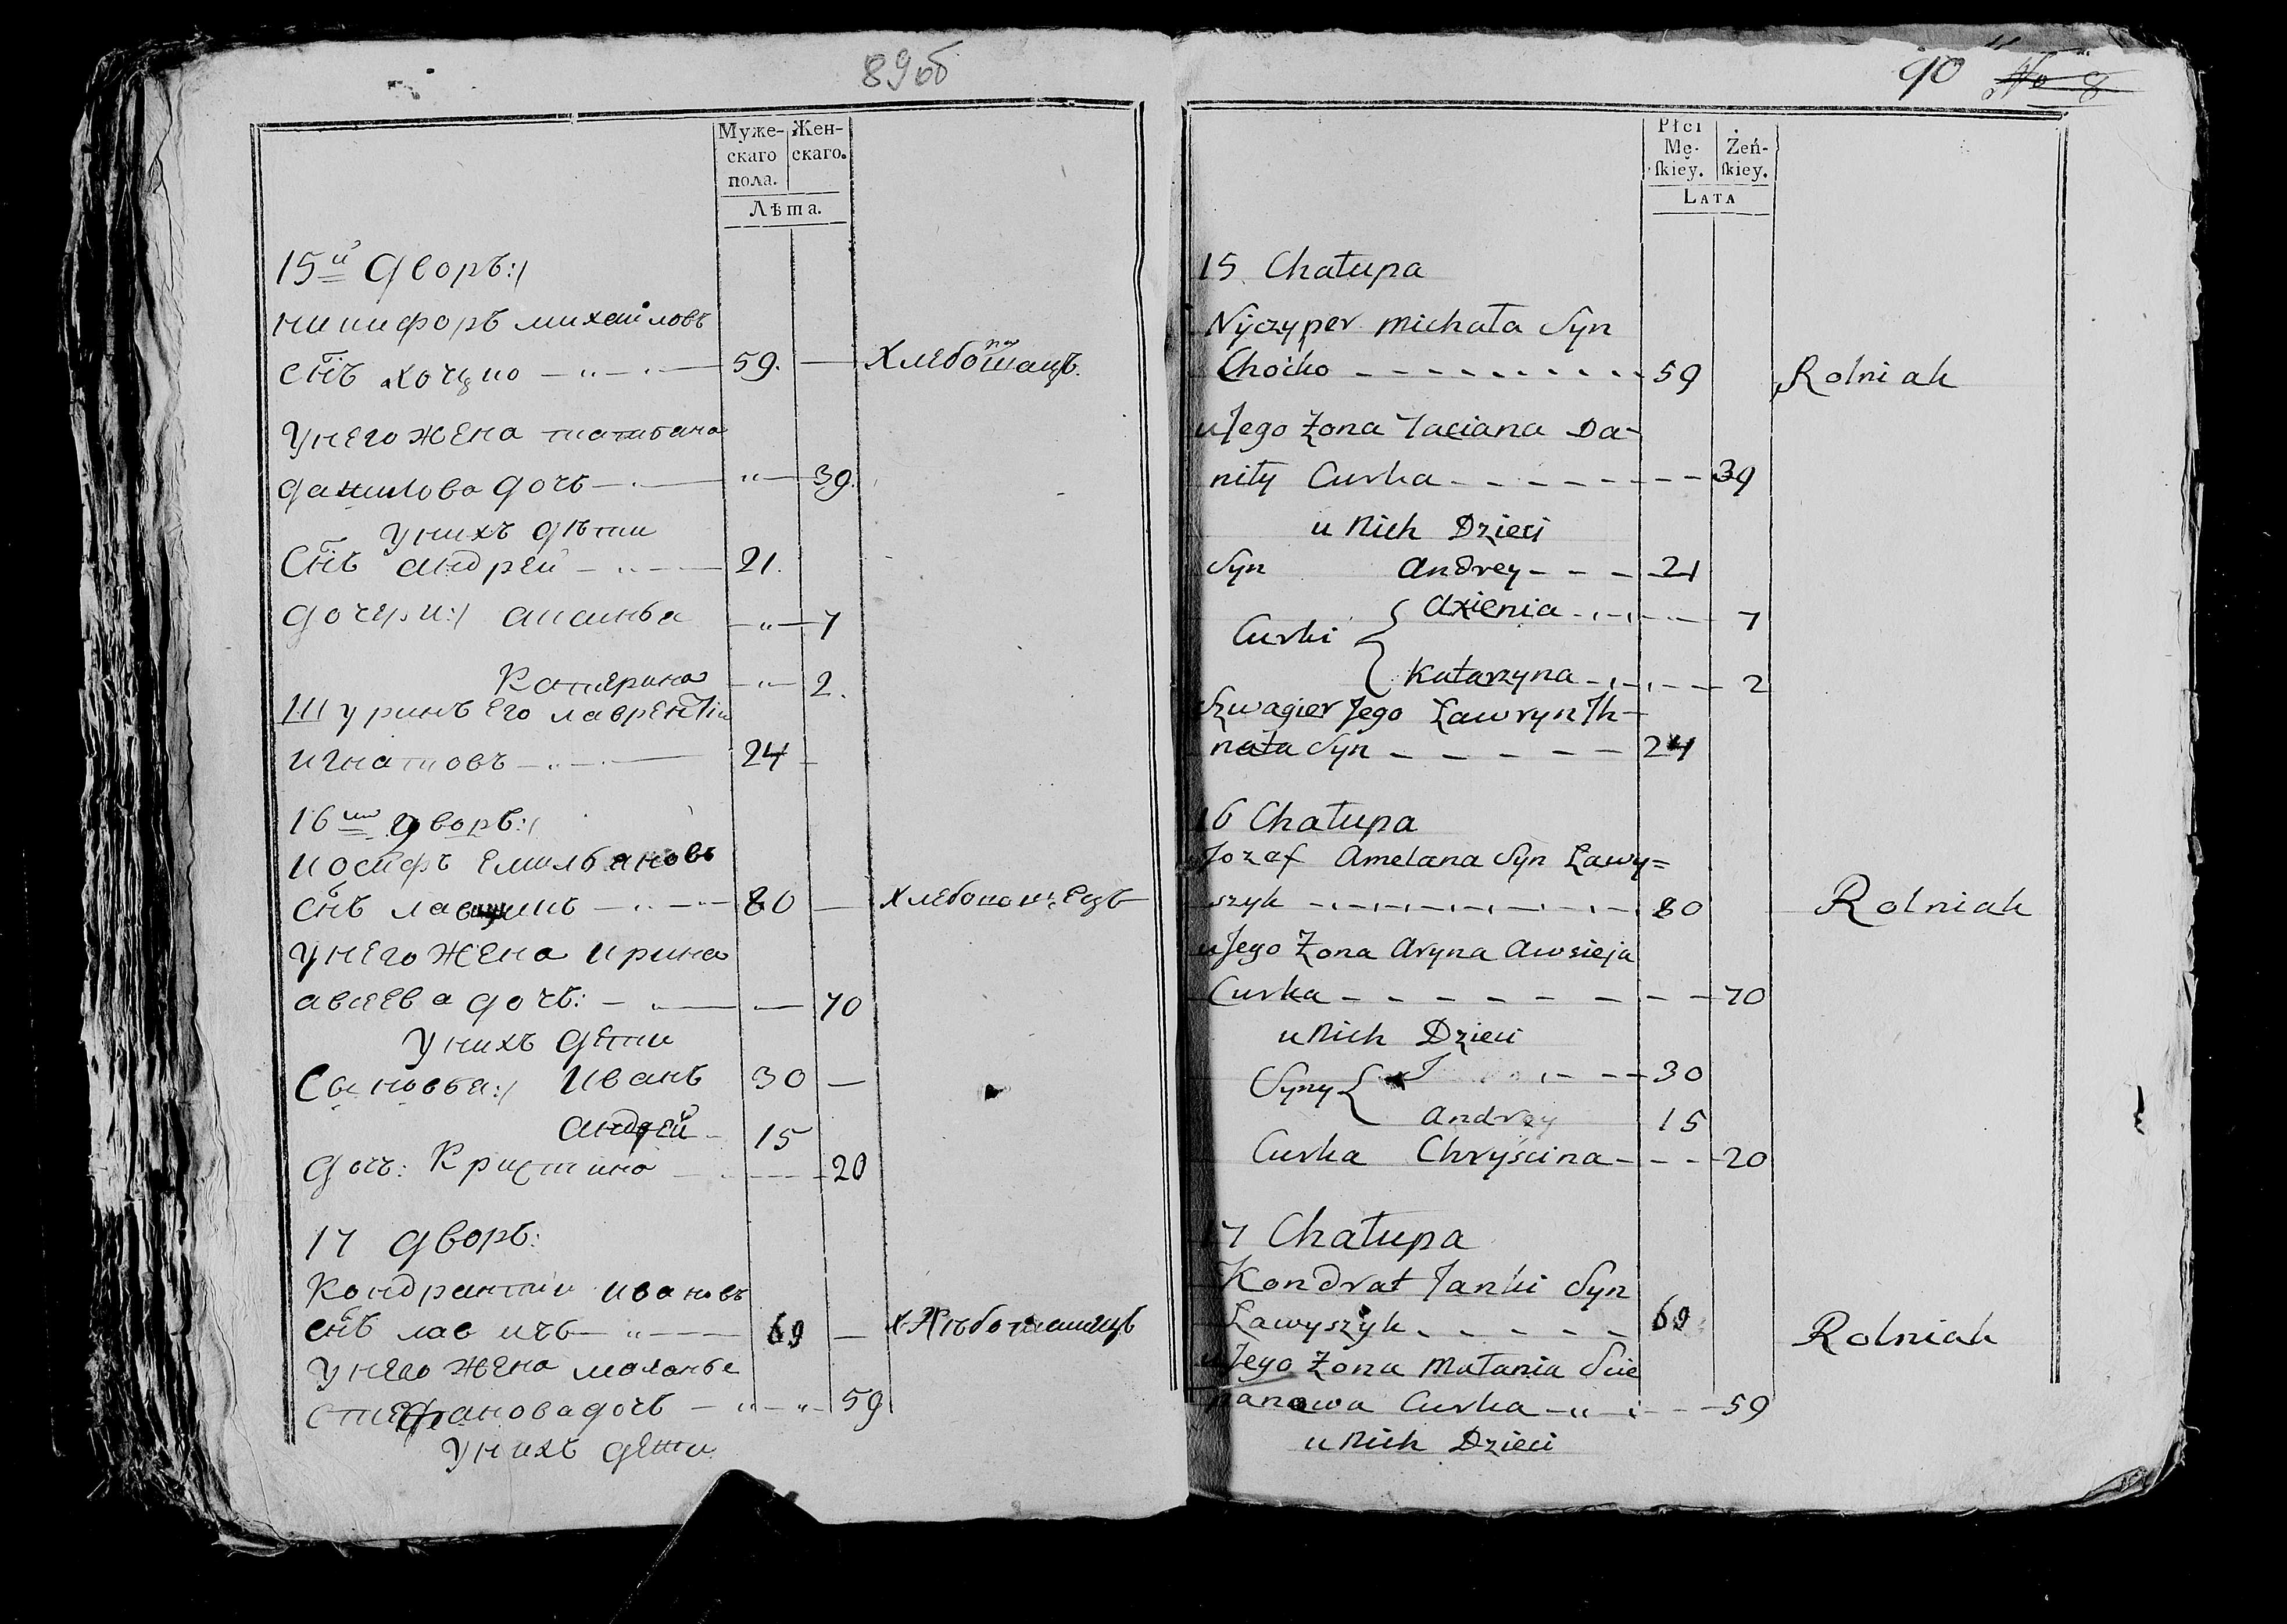 89об
Муже- Жен-
скаго скаго.
пола.
Лѣта.
15й дворъ:/
никифоръ михайловъ
снъ хоцко 59. — Хлебопашцъ.
У него жена татьяна
данилова дочъ 39.
У нихъ дѣти
Снъ андрей 21.
дочери:/ аксинья 7
Катерина 2.
Шуринъ Его лаврентіи
игнатовъ 24
16ты дворъ:/
иосифъ Емильяновъ
снъ 80 — хлебопашецъ
У него жена ирина
авсеева дочъ: 70
У нихъ дети
Сыновья:/ Иванъ 30 —
андрей 15
дочъ: Кристина 20
17 дворъ:
Кондратии ивановъ
снъ 69 — хлѣбопашецъ
У него жена маланья
стефанова дочъ 59
У нихъ дети
90 No 8
Płci
Mę- Żeń-
skiey. skiey.
LATA
15 Chałupa
Nyczyper michała Syn
Choćko 59 Rolniak
u Jego Żona Taciana Da-
niły Curka 39
u Nich Dzieci
Syn Andrey 21
Axienia 7
Curki
Katarzyna 2
Szwagier Jego Ławryn Ih-
nata Syn 24
16 Chałupa
Jozef Amelana Syn Ławy=
szyk 80 Rolniak
u Jego Żona Aryna Awsieja
Curka 70
u Nich Dzieci
Syny J 30
Andrey 15
Curka Chryścina 20
17 Chałupa
Kondrat Janki Syn
Ławyszyk 69 Rolniak
u Jego Żona Małania Scie
panowa Curka 59
u Nich Dzieci